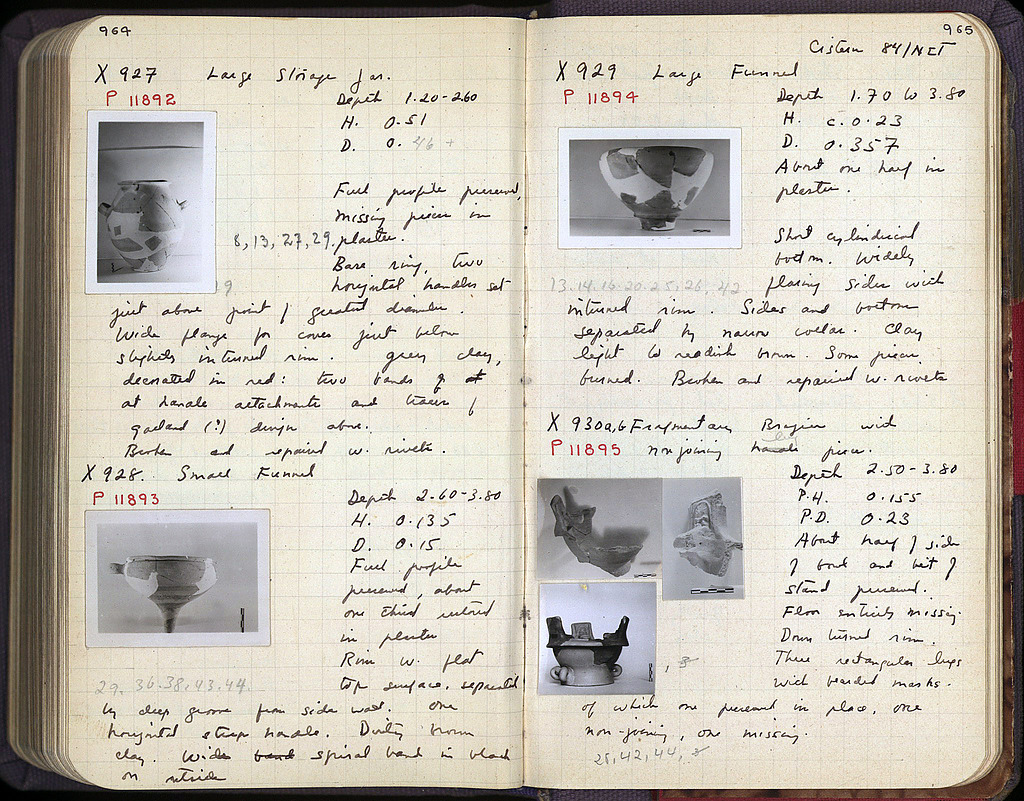 964
X 927 Large Storage Jar.
P 11892
Depth 1.20-2.60
H. 0.51
D. 0.46 +
Full profile preserved,
missing pieces in
8, 13, 27, 29. plaster.
Base ring, two
horizontal handles set
9
just above point of greatest diameter.
Wide flange for cover just below
slightly inturned rim. Grey clay,
decorated in red: two bands
at handle attachments and traces of
garland (?) design above.
Broken and repaired w. rivets.
X 928. Small Funnel
P 11893
Depth 2.60-3.80
H. 0.135
D. 0.15
Full profile
preserved, about
one third restored
in plaster
Rim w. flat
29. 36. 38, 43, 44.
top surface, separated
by deep groove from side wall. One
horizontal strap handle. Dirty brown
clay. Wide band spiral band in black
on outside
965
Cistern 84/NET
X 929 Large Funnel
P 11894
Depth 1.70 to 3.80
H. c. 0.23
D. 0.357
About one half in
plaster.
Short cylindrical
bottom. Widely
13. 14. 16. 20. 25, 26, 42
flaring sides with
inturned rim. Sides and bottom
separated by narrow collar. Clay
light to reddish brown. Some pieces
burned. Broken and repaired w. rivets
X 930a,b Fragmentary Brazier with
P 11895 non joining lug piece.
Depth 2.50-3.80
P.H. 0.155
P.D. 0.23
About half of side
of bowl and bit of
stand preserved.
Floor entirely missing.
Down turned rim.
Three rectangular lugs
with bearded masks.
, 3
of which one preserved in place, one
non-joining, one missing.
25, 42, 44, 3